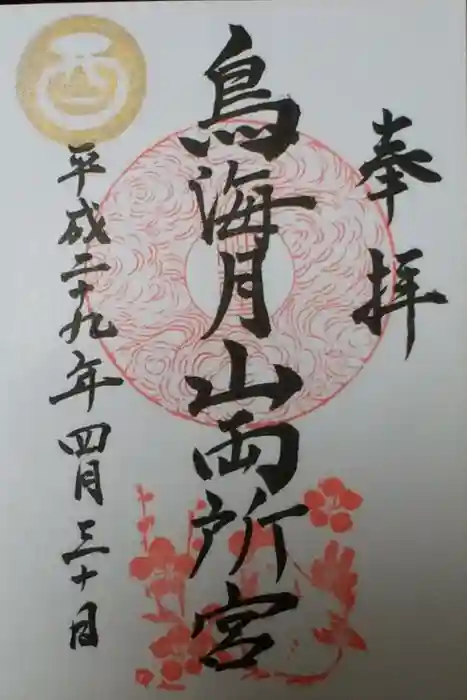 奉拝
鳥海月山両所宮
平成二十九年四月三十日